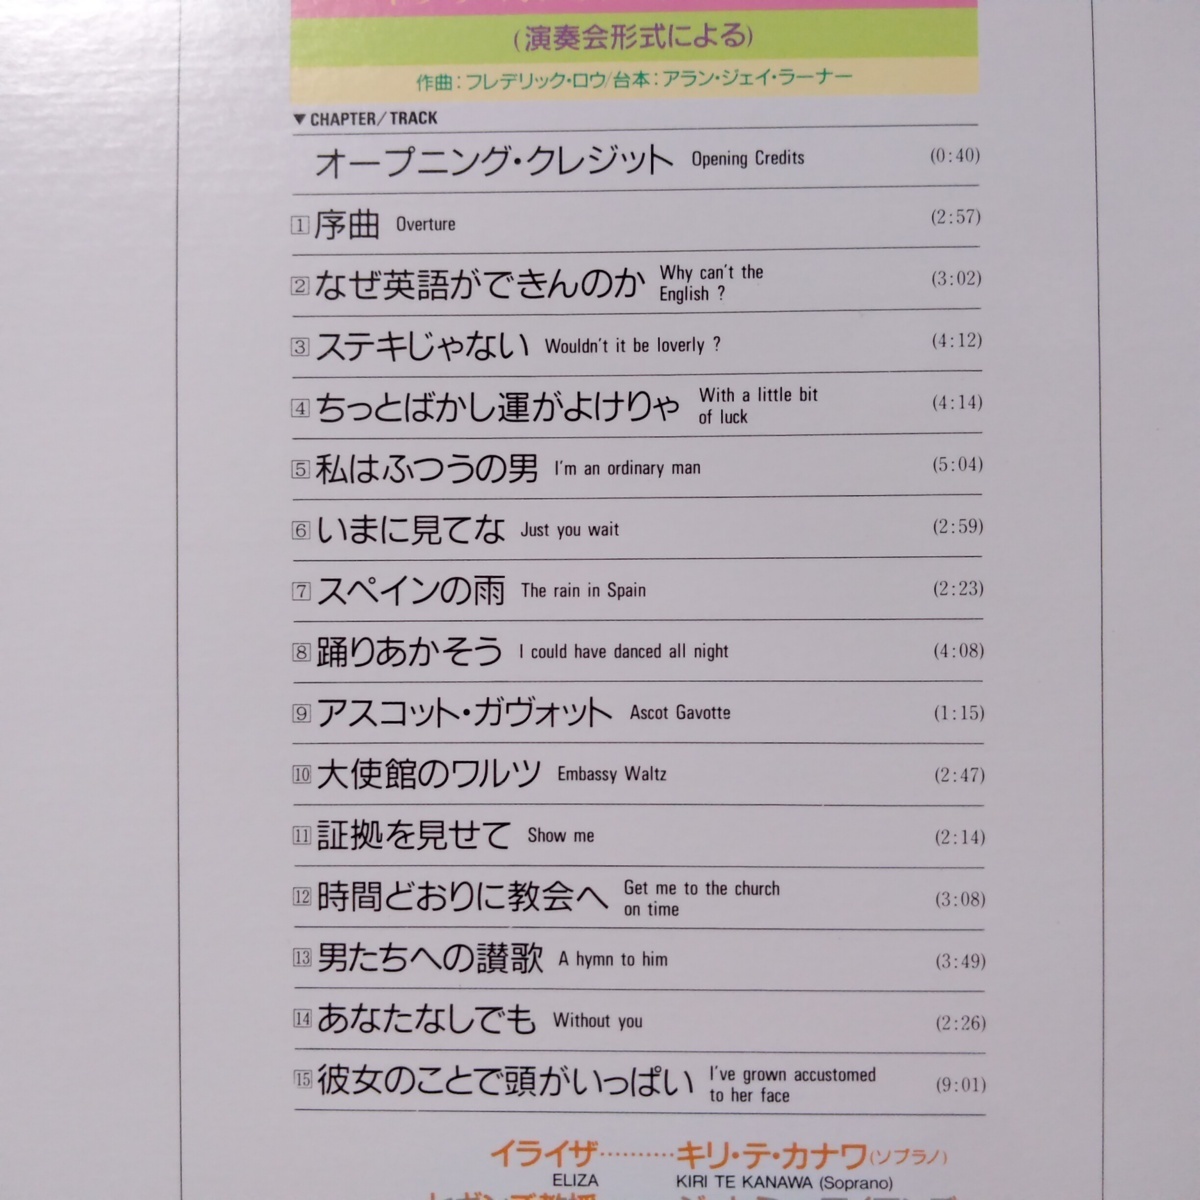 (演奏会形式による)
作曲:フレデリック・ロウ/台本:アラン・ジェイ・ラーナー
▼CHAPTER/TRACK
オープニング・クレジット Opening Credits (0:40)
1 序曲 Overture (2:57)
2 なぜ英語ができんのか Why can't the English ? (3:02)
3 ステキじゃない Wouldn't it be loverly ? (4:12)
4 ちっとばかし運がよけりゃ With a little bit of luck (4:14)
5 私はふつうの男 I'm an ordinary man (5:04)
6 いまに見てな Just you wait (2:59)
7 スペインの雨 The rain in Spain (2:23)
8 踊りあかそう I could have danced all night (4:08)
9 アスコット・ガヴォット Ascot Gavotte (1:15)
10 大使館のワルツ Embassy Waltz (2:47)
11 証拠を見せて Show me (2:14)
12 時間どおりに教会へ Get me to the church on time (3:08)
13 男たちへの讃歌 A hymn to him (3:49)
14 あなたなしでも Without you (2:26)
15 彼女のことで頭がいっぱい I've grown accustomed to her face (9:01)
イライザ··········キリ・テ・カナワ(ソプラノ)
ELIZA KIRI TE KANAWA (Soprano)